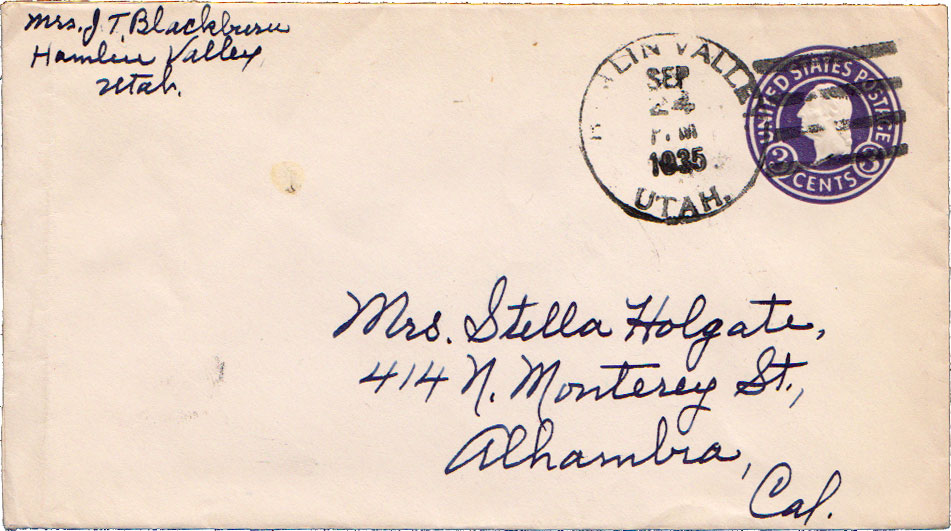 Mrs. J. T. Blackburn
Hamlin Valley
Utah.
HAMLIN VALLEY
SEP
24
P.M
1935
UTAH.
UNITED STATES POSTAGE
3 CENTS 3
Mrs. Stella Holgate,
414 N. Monterey St.,
Alhambra,
Cal.